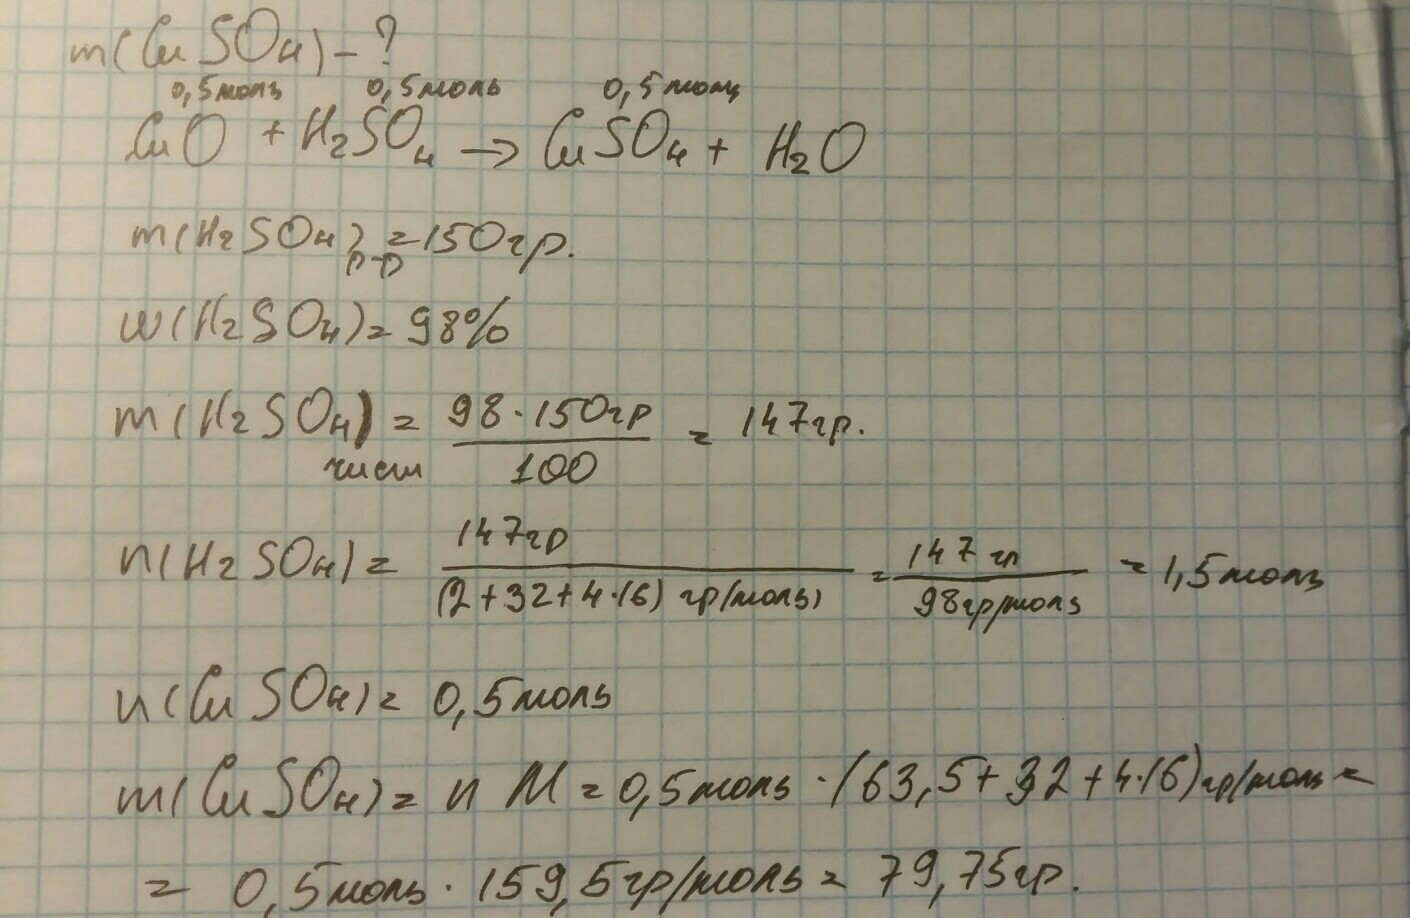 m(CuSO4) - ?
0,5моль 0,5моль 0,5моль
CuO + H2SO4 → CuSO4 + H2O
m(H2SO4)р-р = 150гр.
w(H2SO4) = 98%
m(H2SO4)чист = 98·150гр / 100 = 147гр.
n(H2SO4) = 147гр / (2+32+4·16) гр/моль = 147 гр / 98гр/моль = 1,5моль
n(CuSO4) = 0,5моль
m(CuSO4) = n M = 0,5моль · (63,5+32+4·16)гр/моль =
= 0,5моль · 159,5гр/моль = 79,75гр.